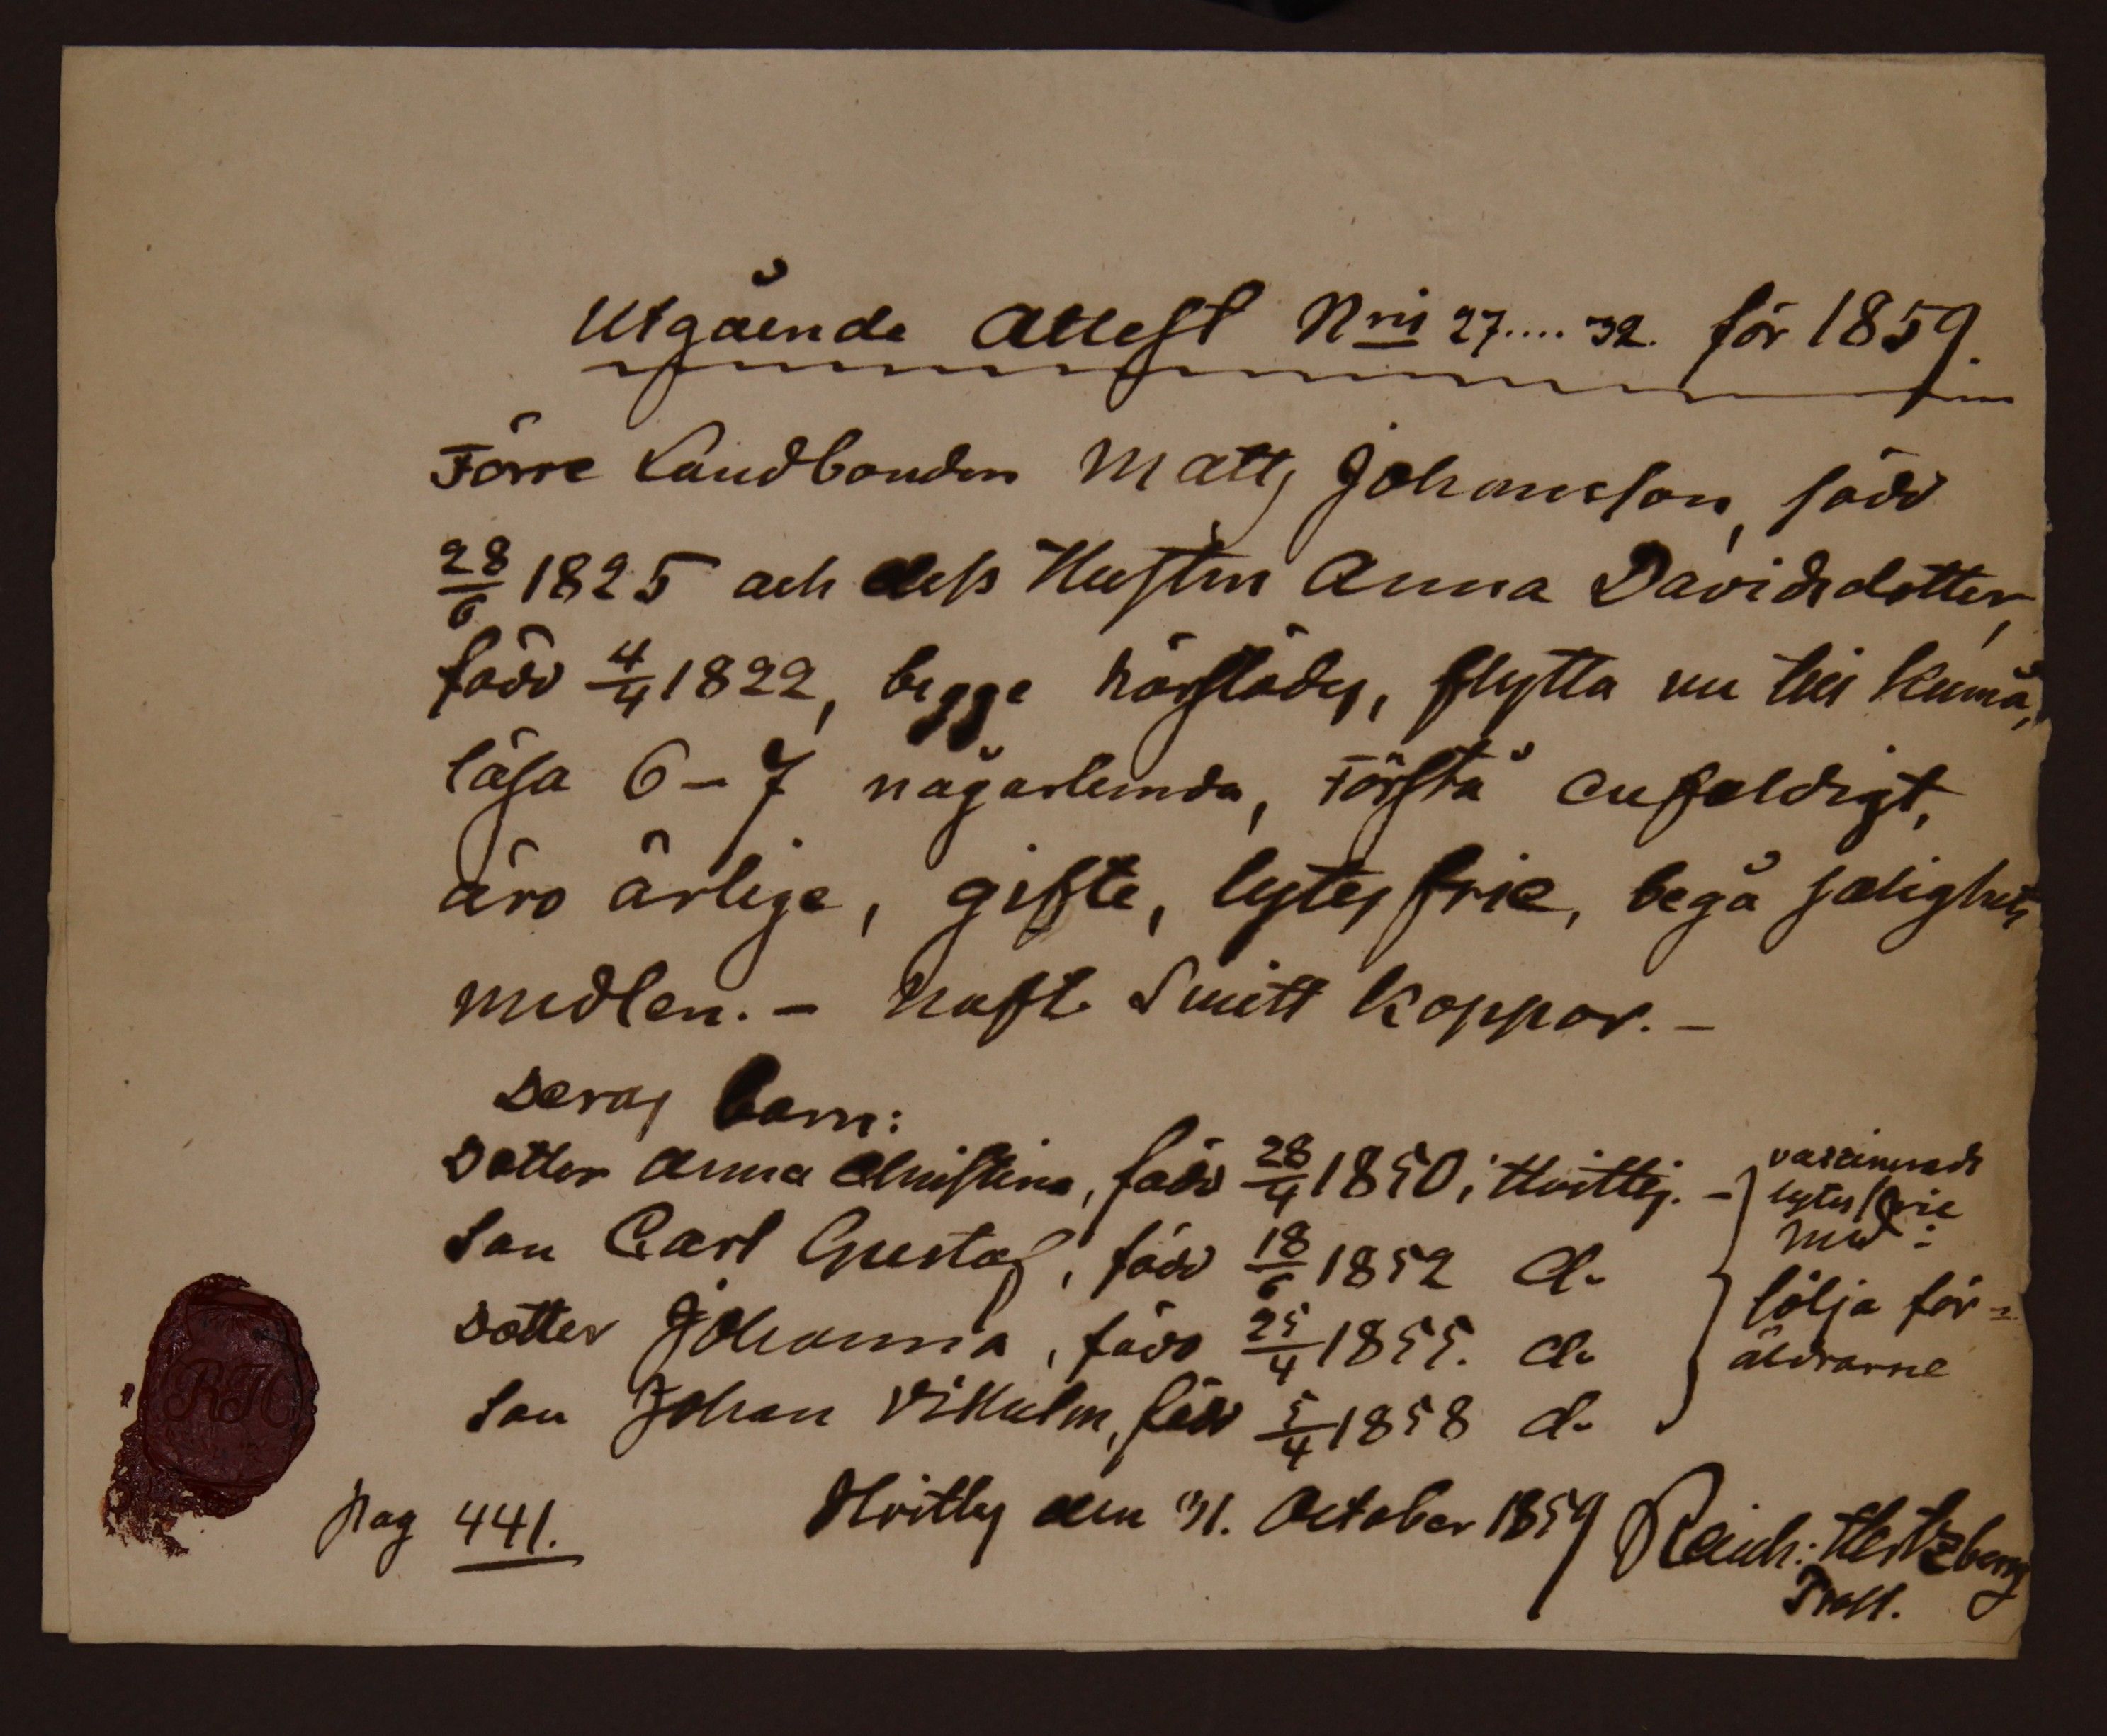 Utgående Attest Nris 27....32. för 1859.
Förre Landbonden Matts Johansson, född
28/6 1825 och dess Hustru Anna Davidsdotter,
född 4/4 1822, begge härstädes, flytta nu till Kumå,
läsa 6-7 någorlunda, förstå enfaldigt,
äro ärlige, gifte, lytesfrie, begå salighets
medlen. - Haft Smitt Koppor. -
Deras barn:
Dotter Anna Christina, född 28/4 1850, i Hvittis. -
Son Carl Gustaf, född 18/6 1852 d.
Dotter Johanna, född 25/4 1855. d.
Son Johan Vilhelm, född 5/4 1858 d.
vaccinerade
lytesfrie
följa för=
äldrarne
Hvittis den 31. October 1859 Reinh: Hertzberg
Prost.
pag 441.
RH